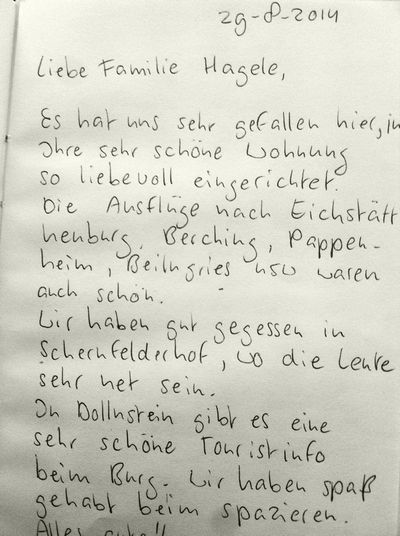 29-8-2014
Liebe Familie Hagele,
Es hat uns sehr gefallen hier, in
Ihre sehr schöne Wohnung
so liebevoll eingerichtet.
Die Ausflüge nach Eichstätt
nenburg, Berching, Pappen-
heim, Beilngries usw waren
auch schön.
Wir haben gut gegessen in
Schernfelderhof, wo die Leute
sehr net sein.
In Dollnstein gibt es eine
sehr schöne Touristinfo
beim Burg. Wir haben spaß
gehabt beim spazieren.
Alles gute!!